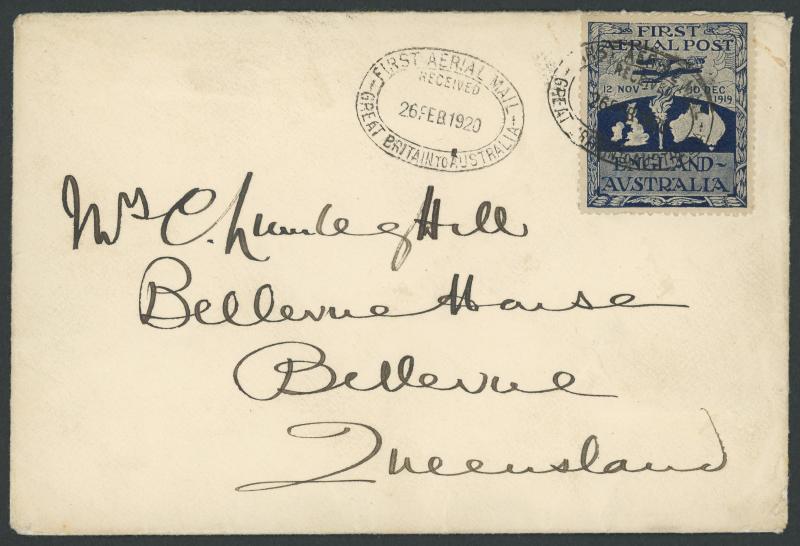 FIRST AERIAL MAIL
RECEIVED
26.FEB.1920
GREAT BRITAIN TO AUSTRALIA
FIRST
AERIAL POST
12 NOV 10 DEC
1919
ENGLAND~
AUSTRALIA
Mrs C. Lumley Hill
Bellevue House
Bellevue
Queensland